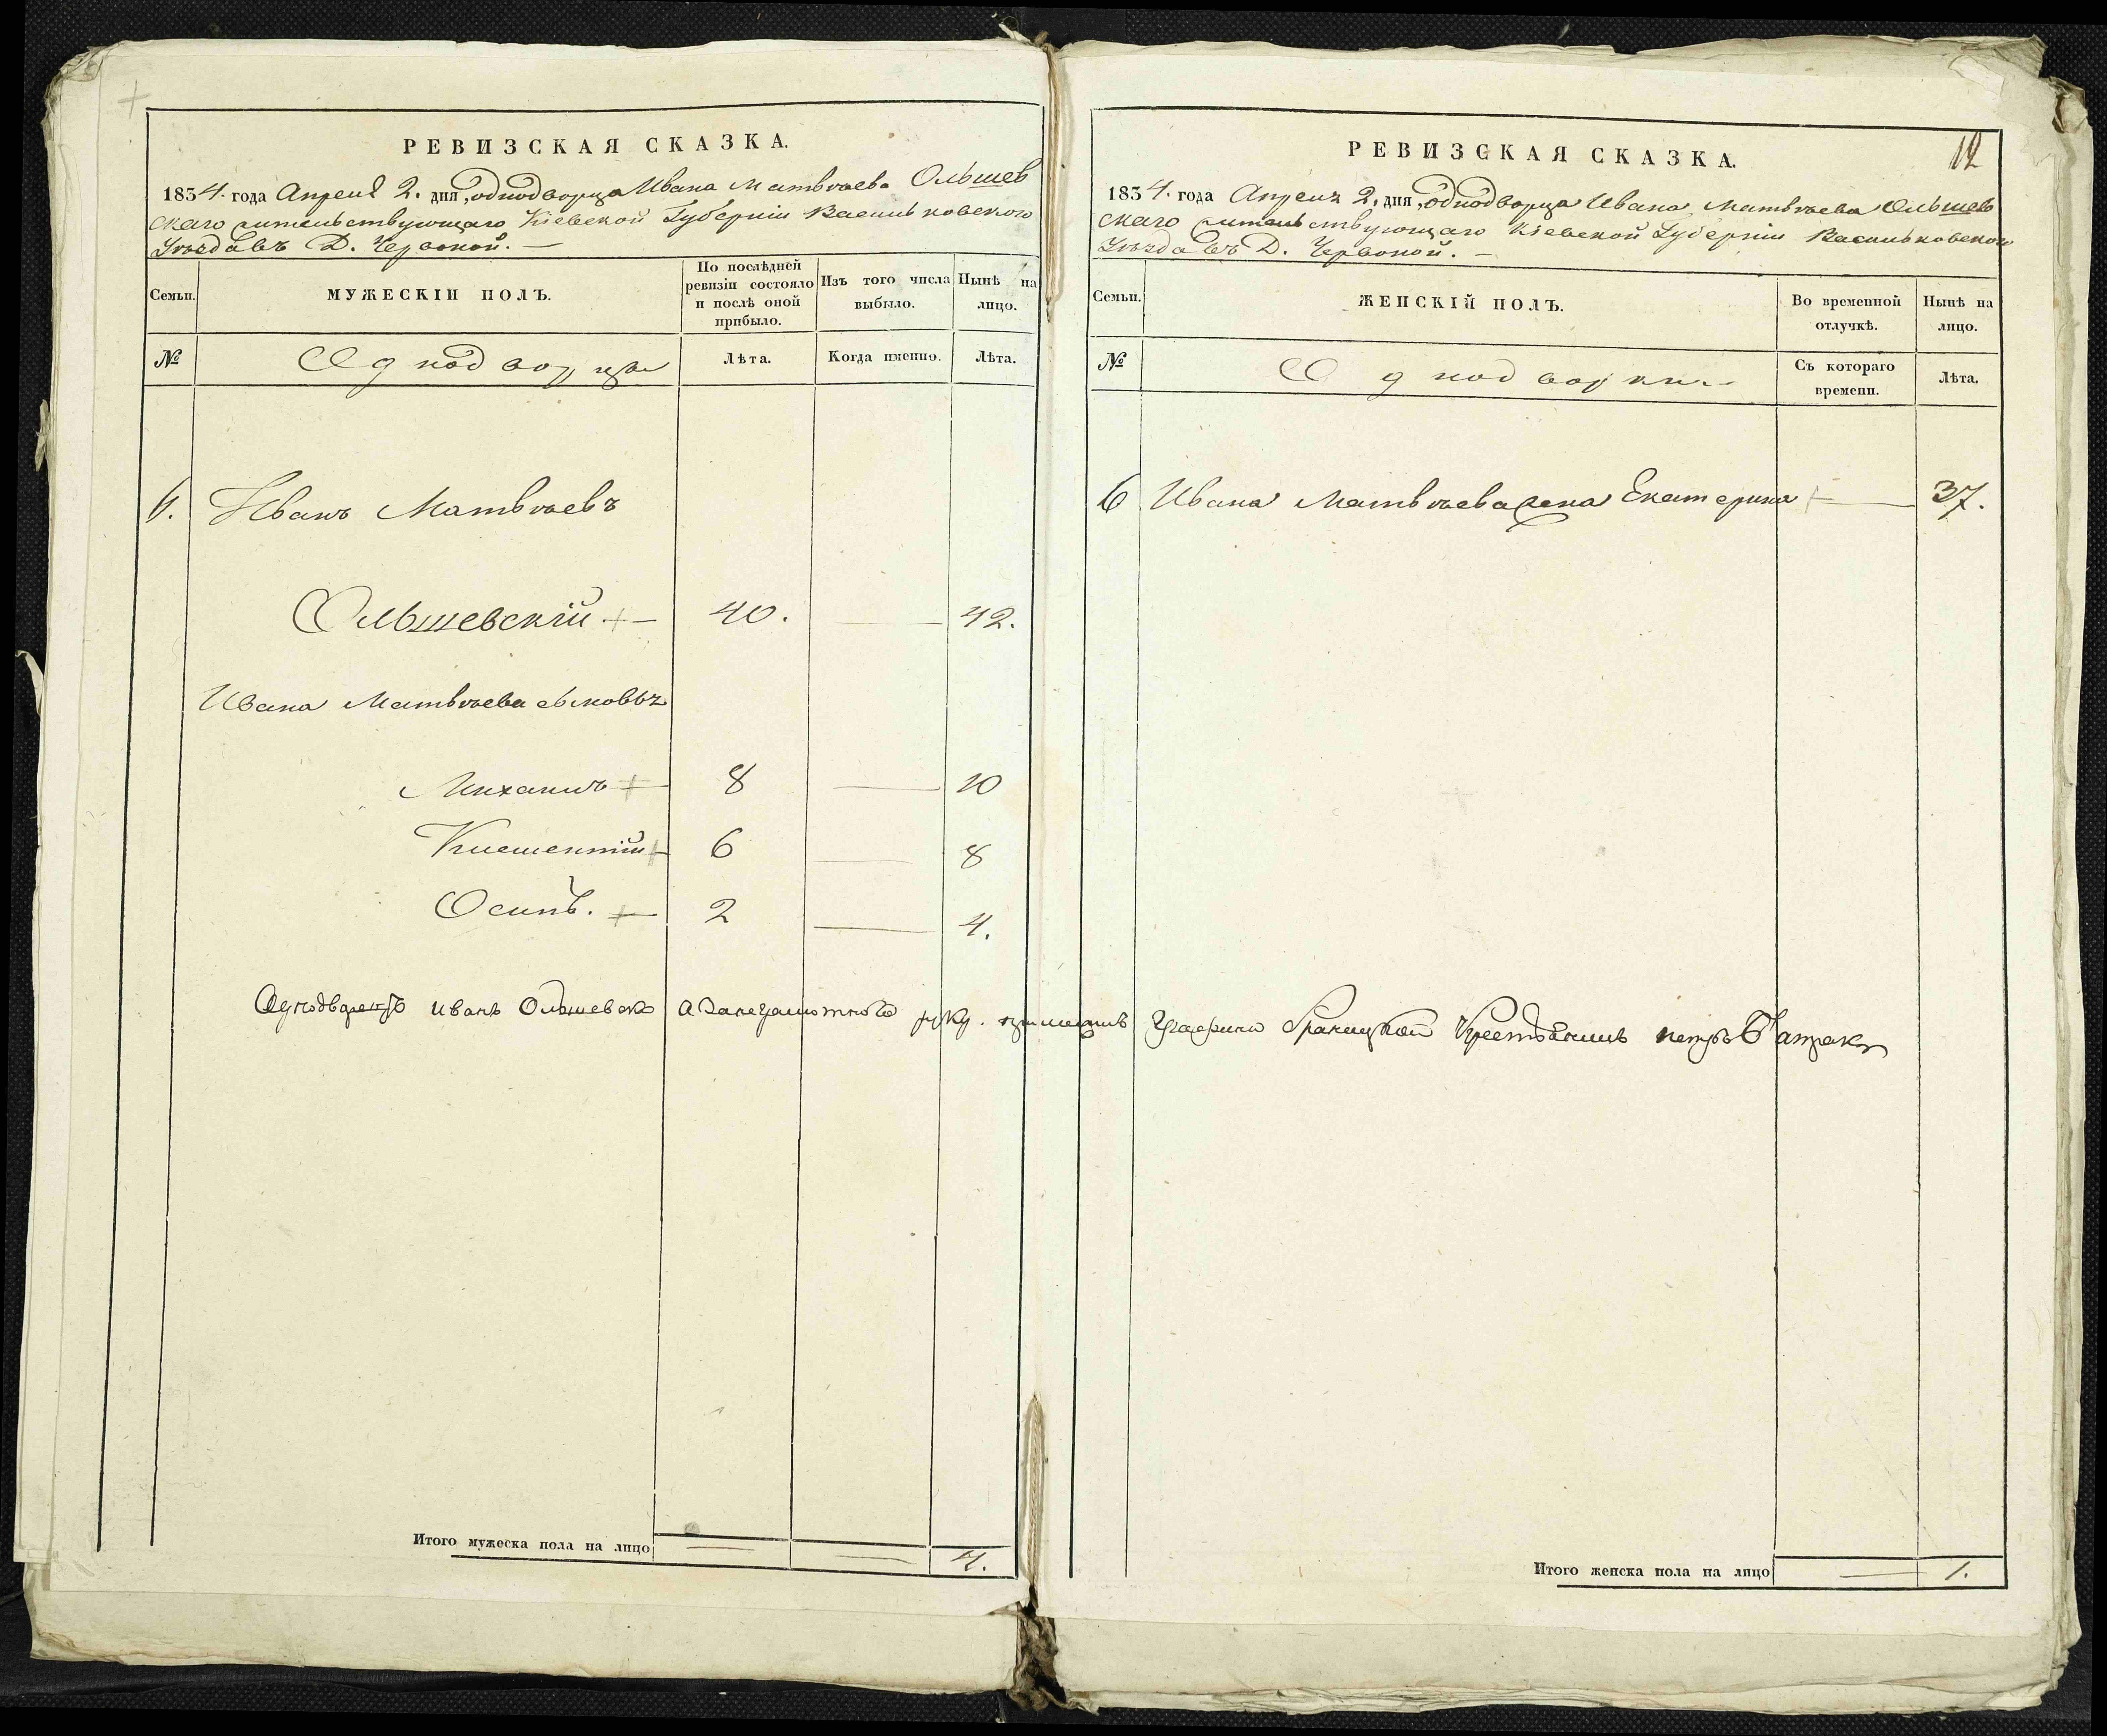 РЕВИЗСКАЯ СКАЗКА.
1834. года Апреля 2. дня, однодворца Ивана Матвѣева Ольшев
скаго жительствующаго Кіевской Губерніи Васильковского
Уѣзда въ Д. Червоной. —
Семьи.
МУЖЕСКІЙ ПОЛЪ.
По послѣдней ревизіи состояло и послѣ оной прибыло.
Изъ того числа выбыло.
Нынѣ на лицо.
№
Однодворцы
Лѣта.
Когда именно.
Лѣта.
6. Иванъ Матвѣевъ
Ольшевскій. — 40. — 42.
Ивана Матвѣева сыновья
Михаилъ — 8 — 10
Климентій — 6 — 8
Осипъ. — 2 — 4.
Итого мужеска пола на лицо — — 4.
12
РЕВИЗСКАЯ СКАЗКА.
1834. года Апреля 2, дня, однодворца Ивана Матвѣева Ольшев
скаго жительствующаго Кіевской Губерніи Васильковского
Уѣзда въ Д. Червоной. —
Семьи.
ЖЕНСКІЙ ПОЛЪ.
Во временной отлучкѣ.
Нынѣ на лицо.
№
Однодворки
Съ котораго времени.
Лѣта.
6 Ивана Матвѣева жена Екатерина — 37.
Однодворецъ Иванъ Ольшевски а Занеграмотного руку Крестьянинъ петръ
Итого женска пола на лицо — 1.